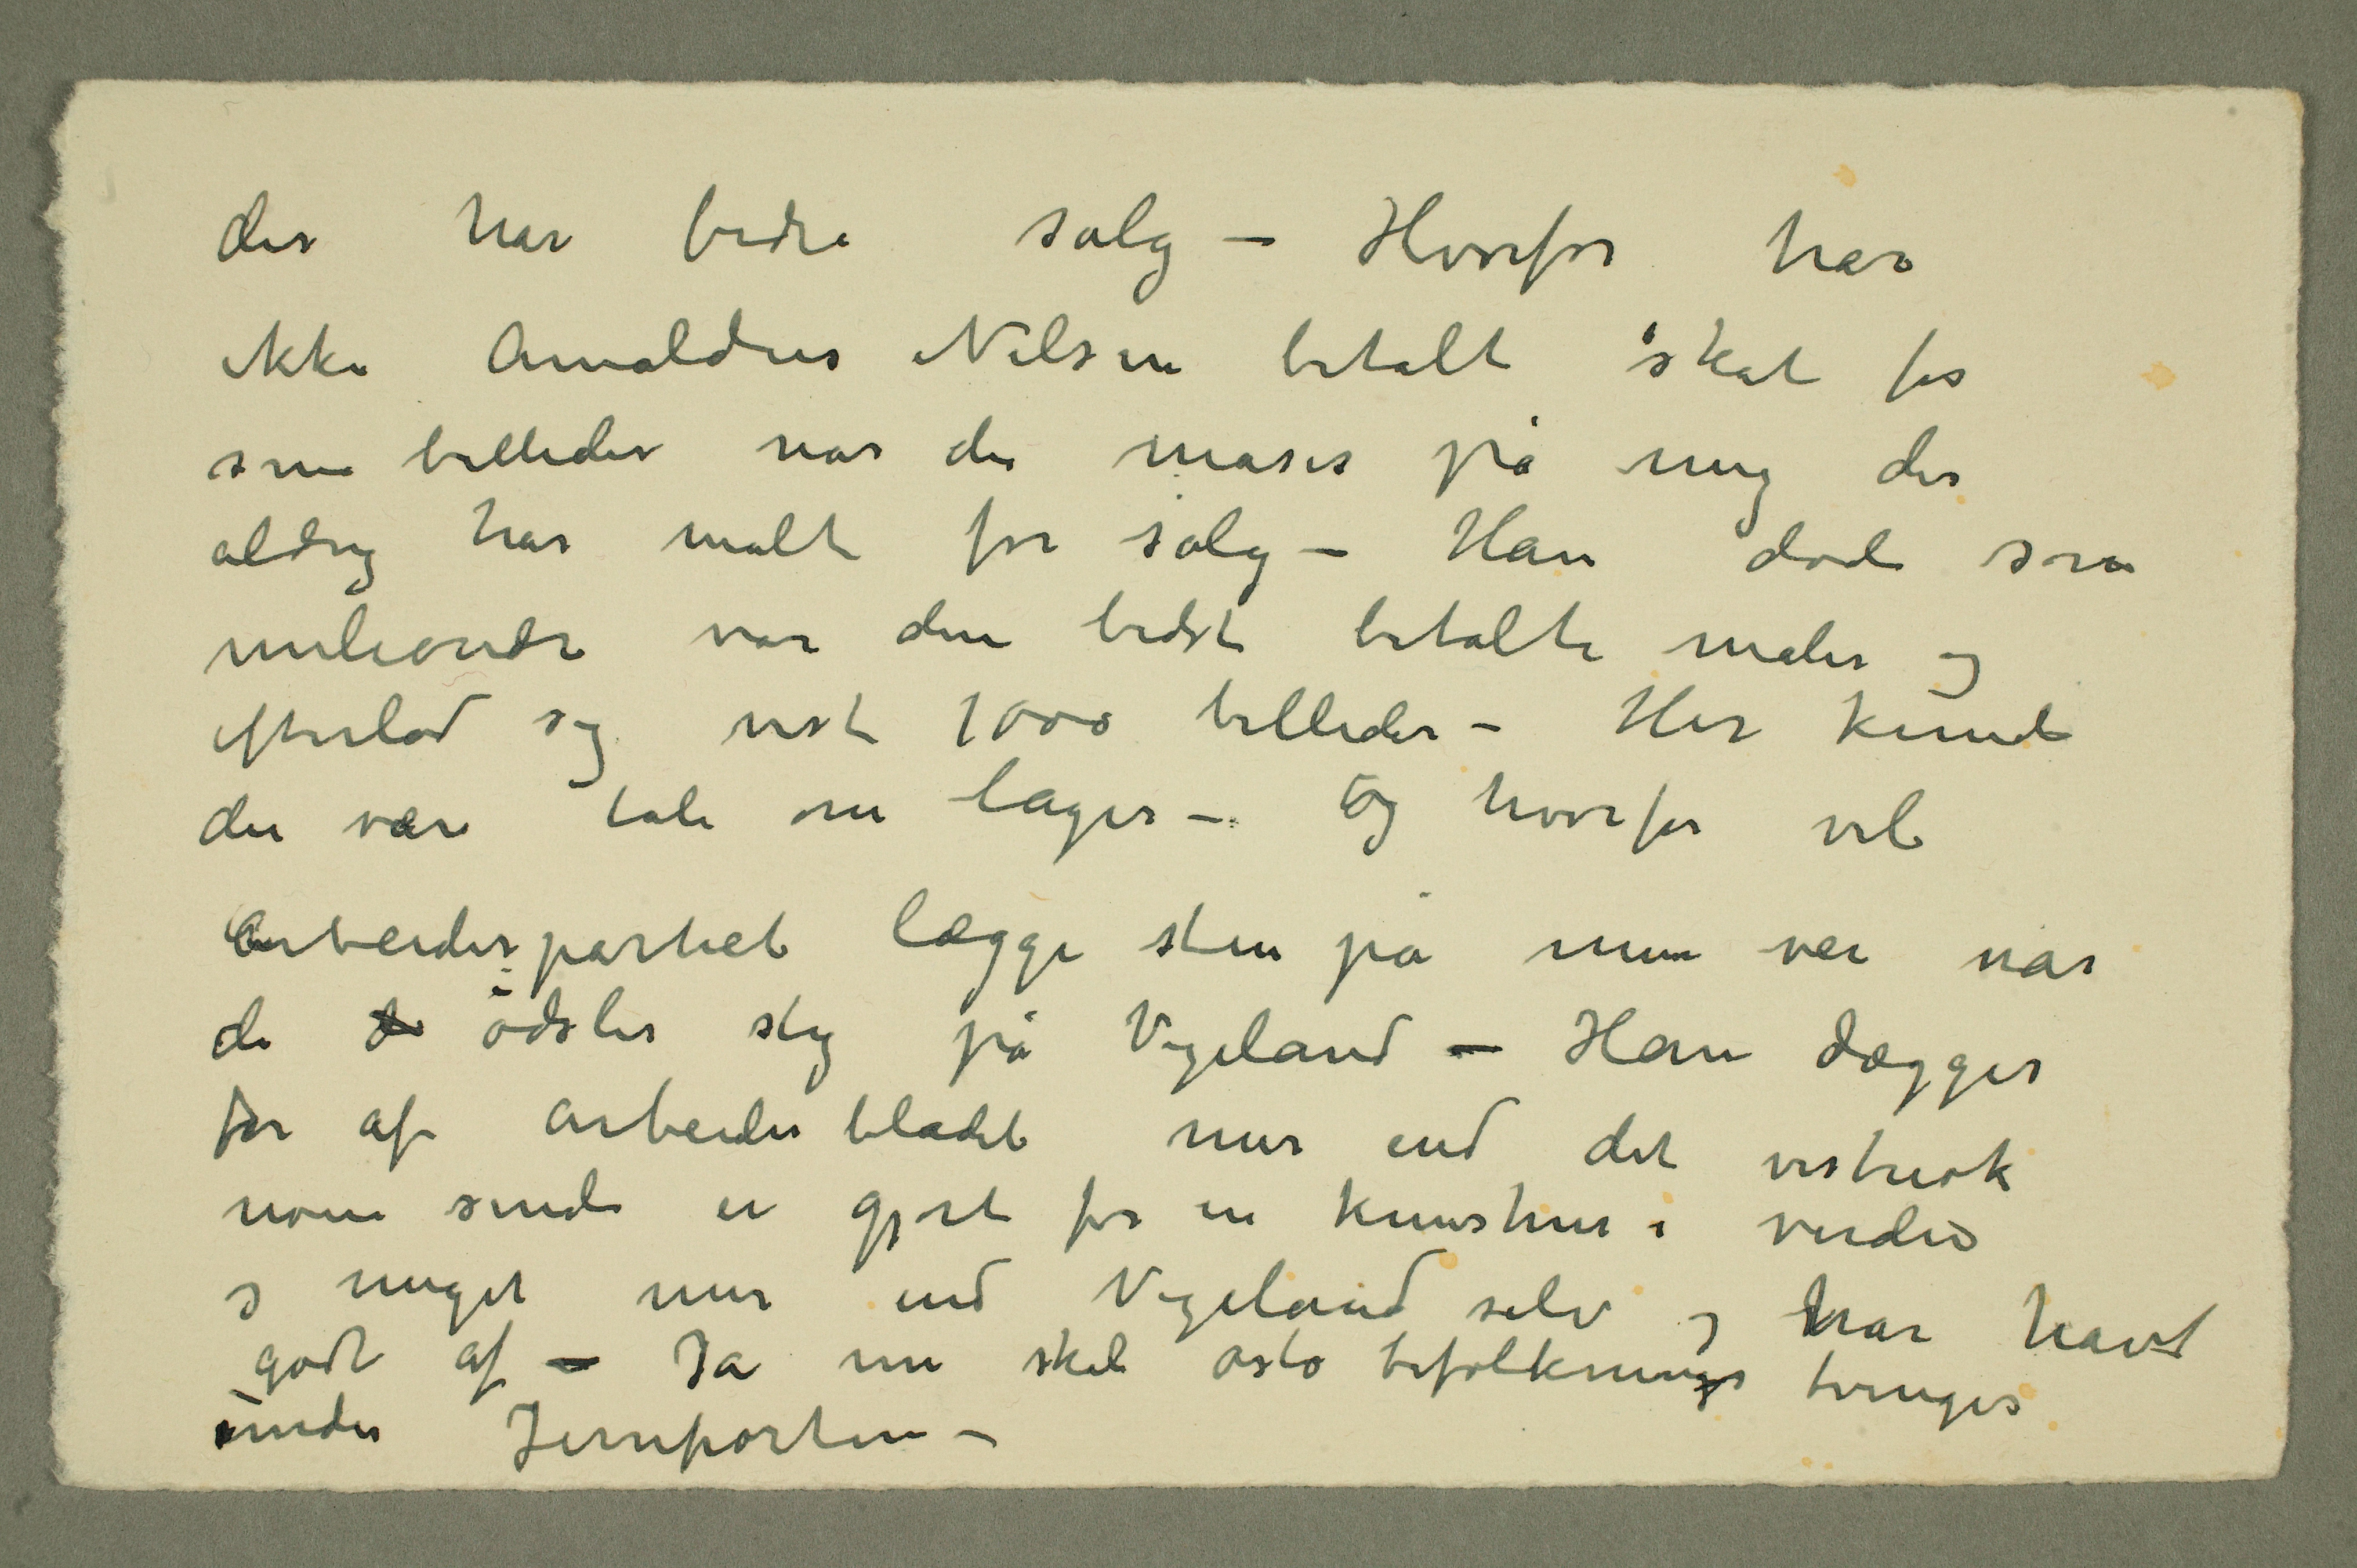 der har bedre salg – Hvorfor har
ikke Amaldus Nilsen betalt skat for
sine billeder når der mases på mig der
aldrig har malt for salg – Han døde som
milionær var den bedst betalte maler og
efterlod sig vist 1000 billeder – Her kunde
der være tale om lager – Og hvorfor vil
Arbeiderpartiet lægge sten på min vei når
de ødsler slig på Vigeland – Han dægges
for af Arbeiderbladet mer end det vistnok
nogensinde er gjort for en kunstner i verden
og meget mer end Vigeland selv og har havt
godt af – Ja nu skal Oslo befolkning tvinges
under Jernporten –